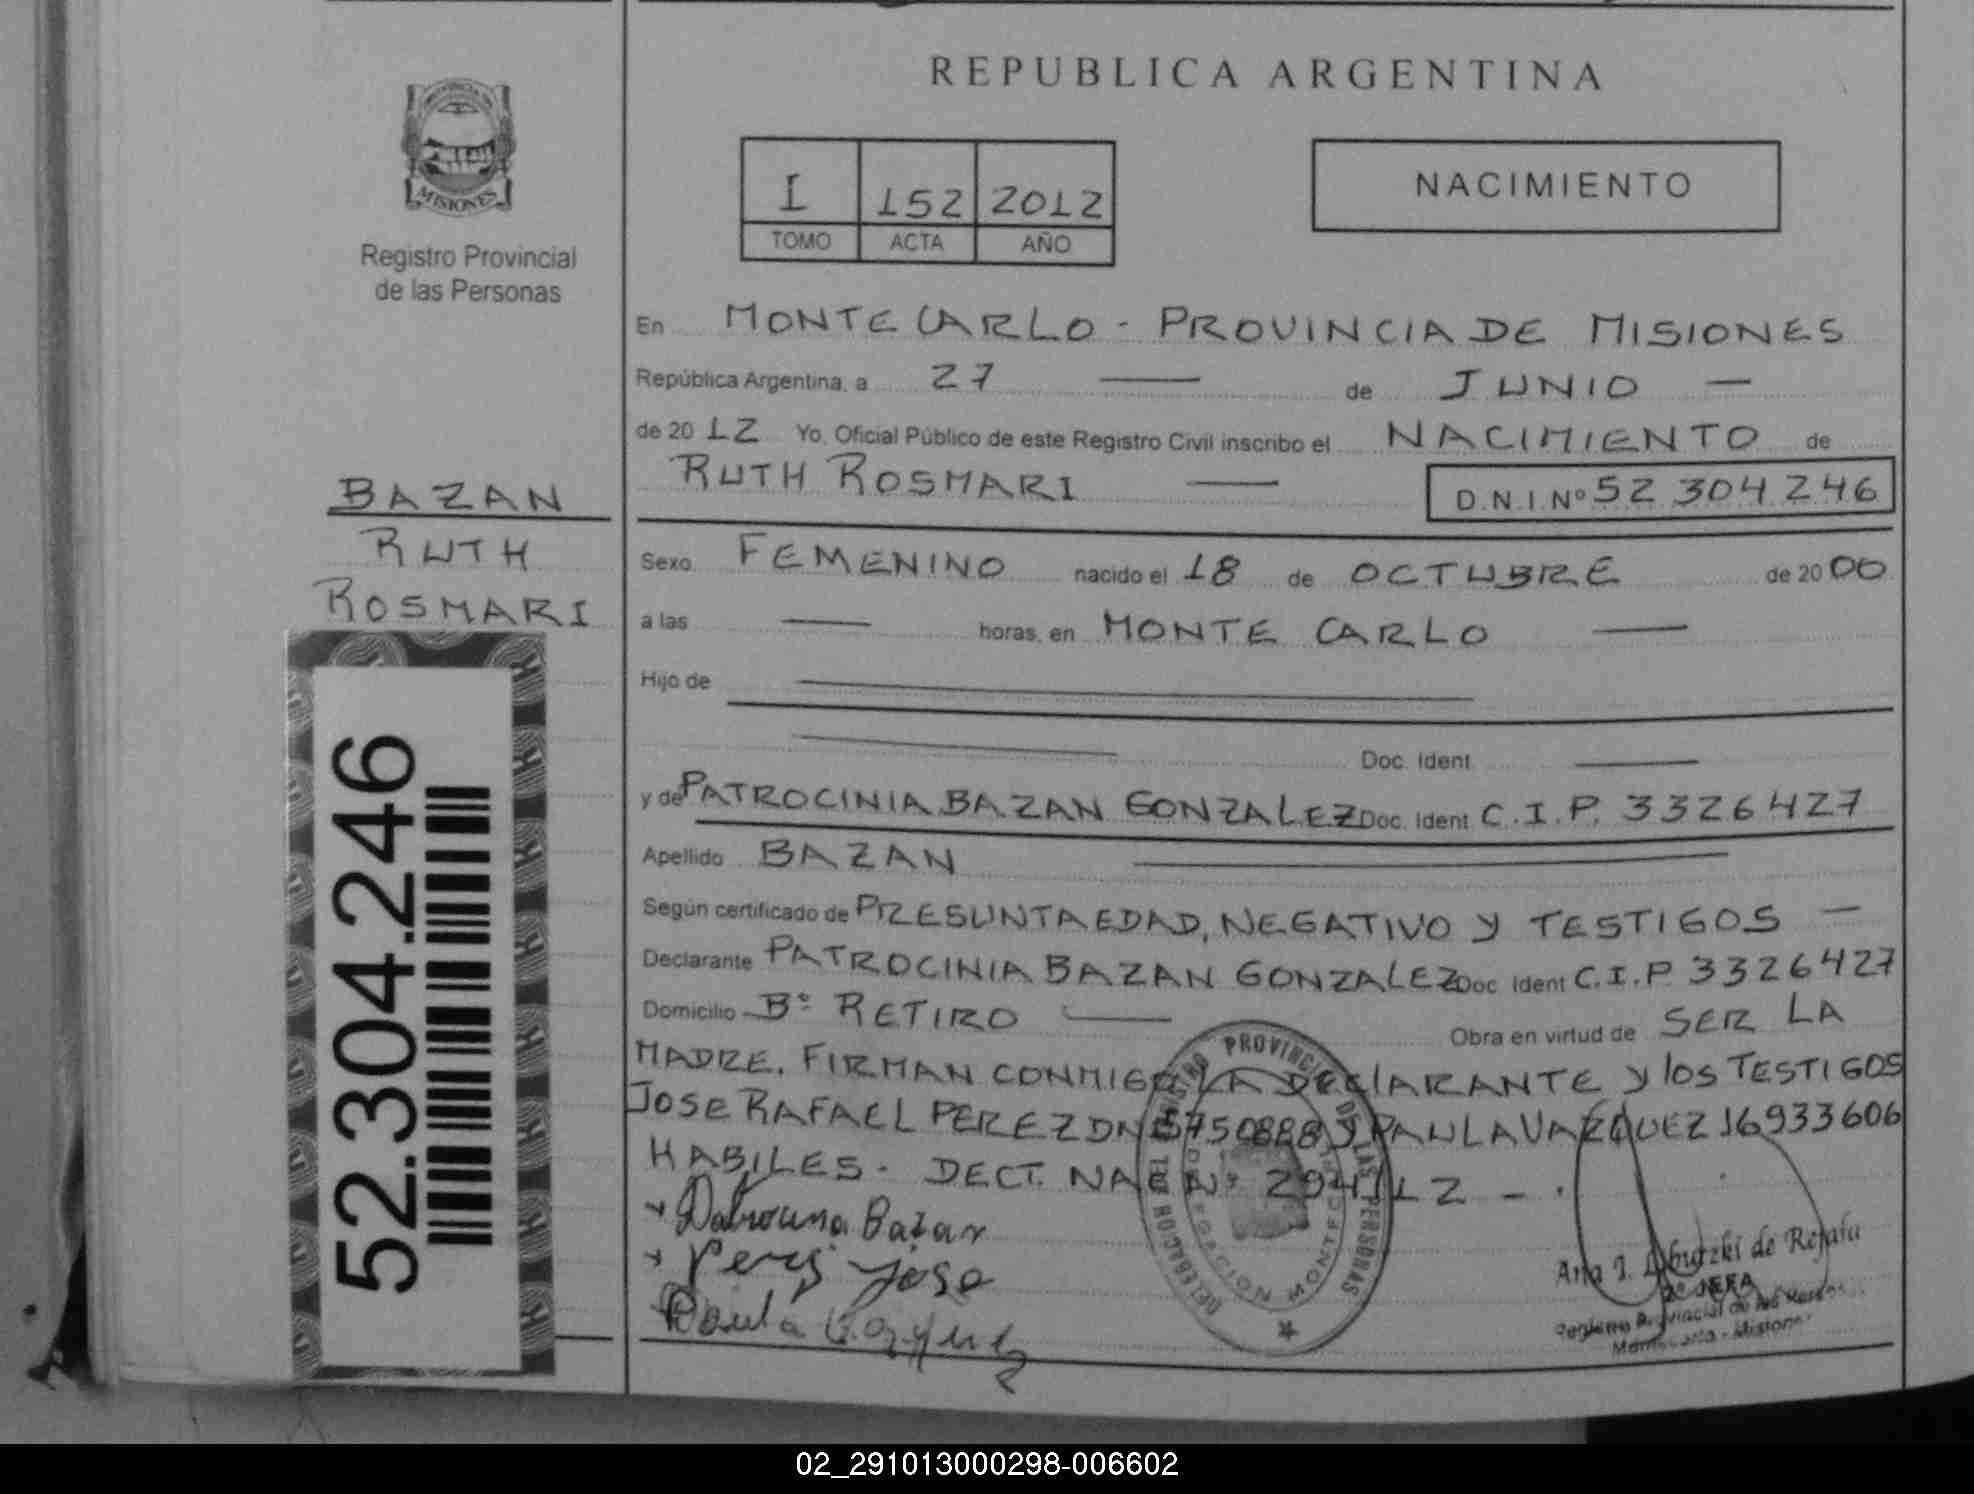 REPUBLICA ARGENTINA
MISIONES
Registro Provincial
de las Personas
I 152 2012
TOMO ACTA AÑO
NACIMIENTO
En MONTECARLO - PROVINCIA DE MISIONES
República Argentina, a 27 de JUNIO
de 2012 Yo, Oficial Público de este Registro Civil inscribo el NACIMIENTO de
RUTH ROSMARI D.N.I.Nº 52 304 246
BAZAN
RUTH
ROSMARI
52.304.246
Sexo FEMENINO nacido el 18 de OCTUBRE de 2000
a las horas, en MONTE CARLO
Hijo de
Doc. Ident.
y de PATROCINIA BAZAN GONZALEZ Doc. Ident C.I.P. 3326427
Apellido BAZAN
Según certificado de PRESUNTA EDAD, NEGATIVO Y TESTIGOS
Declarante PATROCINIA BAZAN GONZALEZ Doc. Ident C.I.P 3326427
Domicilio Bº RETIRO Obra en virtud de SER LA
MADRE. FIRMAN CONMIGO LA DEClARANTE y los TESTIGOS
JOSE RAFAEL PEREZ y PAULA VAZQUEZ 16933606
HABILES. DECT. NAC Nº 294/12 -
Bazan
Perez Jose
Paula
DELEGACION DEL REGISTRO PROVINCIAL DE LAS PERSONAS
Ana J. de
2º JEFA
Registro Provincial de las Personas
Montecarlo - Misiones
02_291013000298-006602